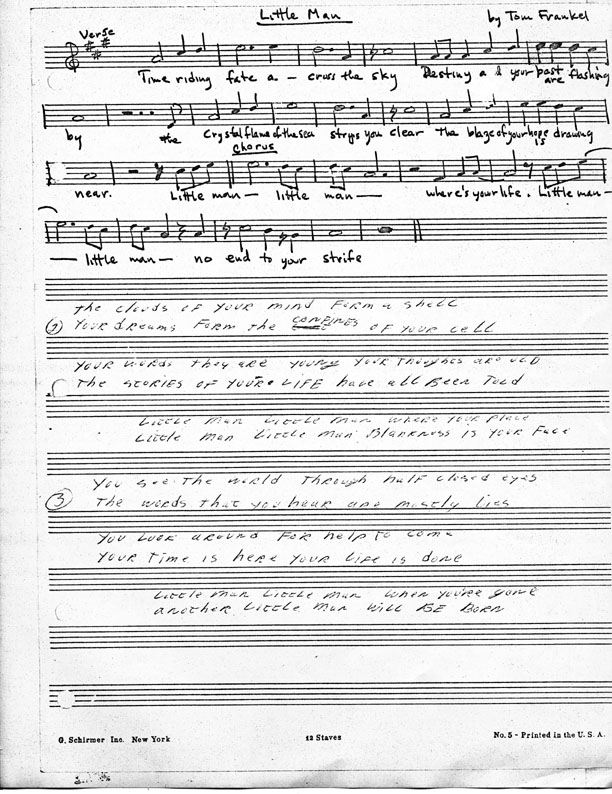 Little Man
by Tom Frankel
Verse
Time riding fate a - cross the sky Destiny a & your past are flashing
by the Crystal flame of the sea strips you clear the blaze of your hope is drawing
Chorus
near. Little man — little man — where's your life. Little man —
— little man — no end to your strife
The clouds of your mind form a shell
② Your dreams form the confines of your cell
Your words they are young your thoughts are old
The stories of your life have all Been Told
Little Man Little Man where your place
Little Man Little Man Blankness is your Face
You see the world through half closed eyes
③ The words that you hear are mostly lies
You look around for help to come
Your time is here your life is done
Little Man Little Man when you're gone
another Little Man will Be Born
G. Schirmer Inc. New York
12 Staves
No. 5 - Printed in the U. S. A.